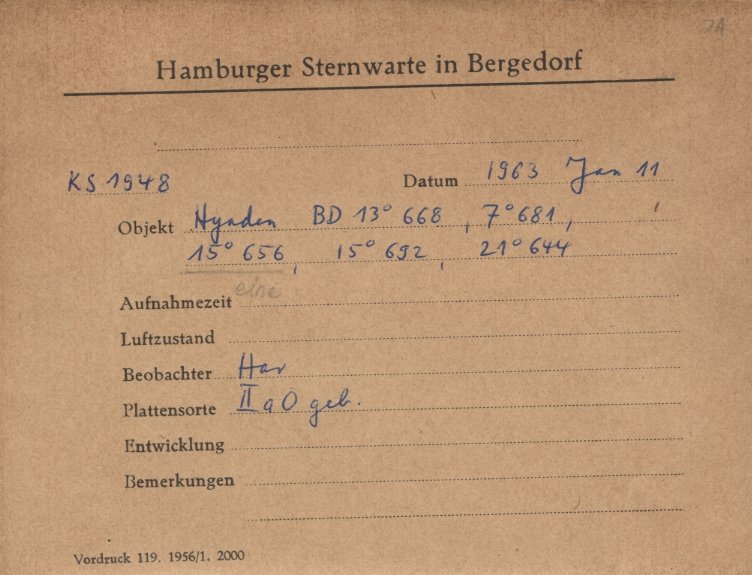 Hamburger Sternwarte in Bergedorf
KS 1948 Datum 1963 Jan 11
Objekt Hyaden BD 13° 668, 7° 681,
15° 656, 15° 692, 21° 644
eine
Aufnahmezeit
Luftzustand
Beobachter Har
Plattensorte II a O geb.
Entwicklung
Bemerkungen
Vordruck 119. 1956/1. 2000